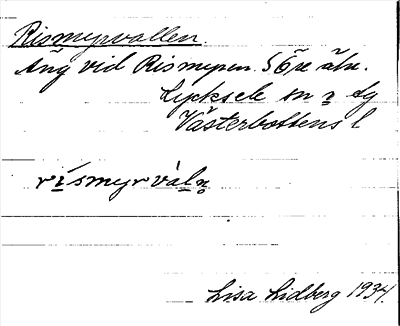 Rismyrvallen.
Äng vid Rismyren. S Öre älv.
Lycksele sn o lg
Västerbottens l
rismyrvaln
Lisa Lidberg 1934.